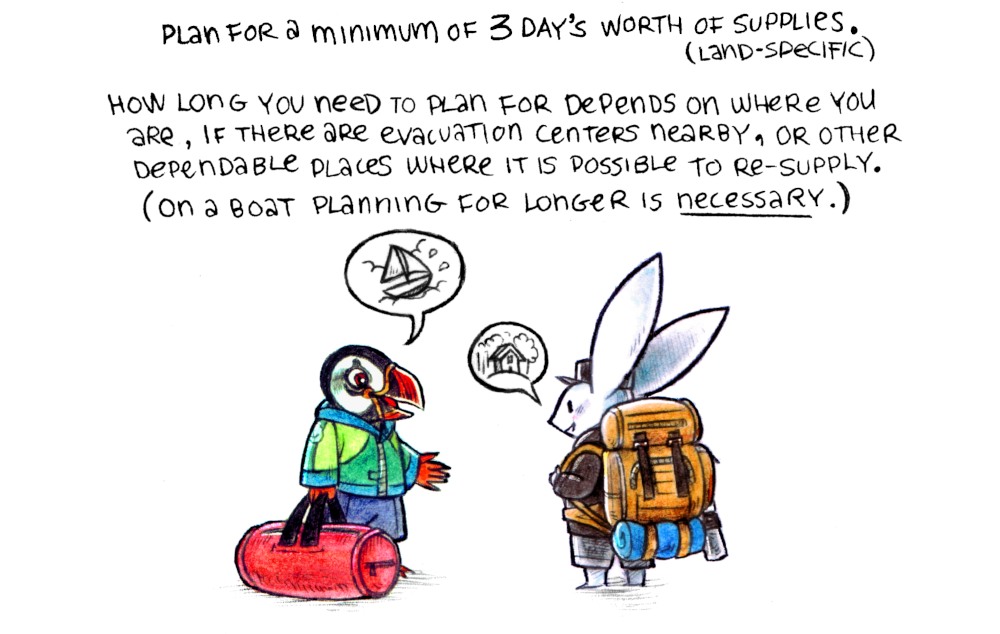 PLAN FOR A MINIMUM OF 3 DAY'S WORTH OF SUPPLIES.
(LAND-SPECIFIC)
HOW LONG YOU NEED TO PLAN FOR DEPENDS ON WHERE YOU
ARE, IF THERE ARE EVACUATION CENTERS NEARBY, OR OTHER
DEPENDABLE PLACES WHERE IT IS POSSIBLE TO RE-SUPPLY.
(ON A BOAT PLANNING FOR LONGER IS NECESSARY.)